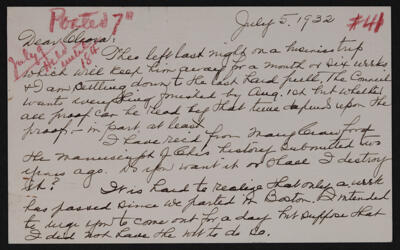 Posted 7"
July 5, 1932
#41
Dear Clara!
Theo left last night on a business trip
which will keep him away for a month or six weeks
& I am settling down to the last hard pull, The Council
wants everything printed by Aug. 1st but whether
all proof can be read by that time depends upon the
proof - in part at least.
I have rec'd from Mary Crawford
the manuscript of Chi's history submitted two
years ago. Do you want it or shall I destroy
it?
It is hard to realize that only a week
has passed since we parted in Boston. I intended
to urge you to come out for a day but suppose that
I did not have the wit to do so.